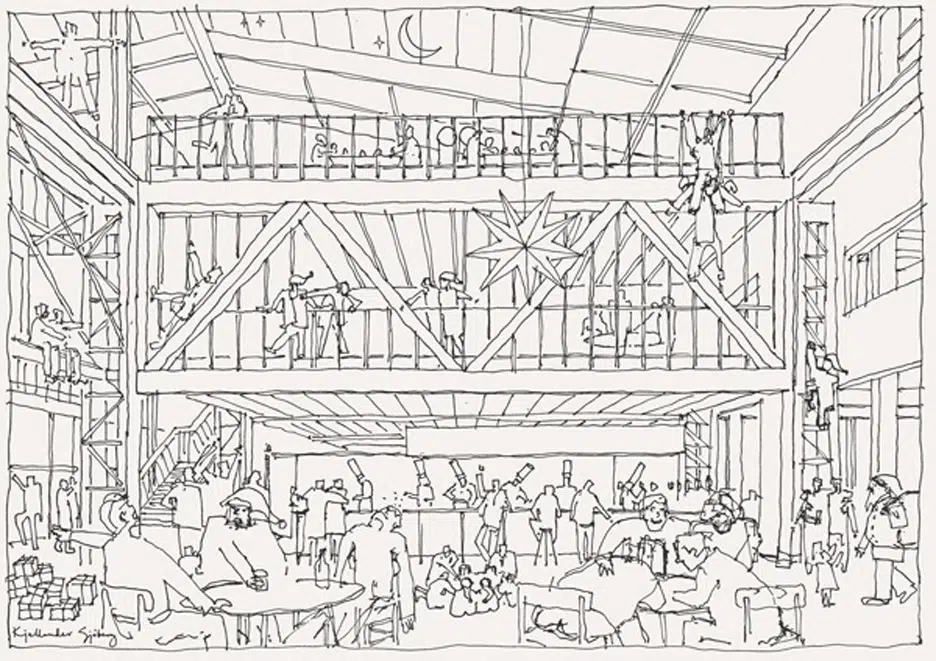 Kjellander Sjöberg